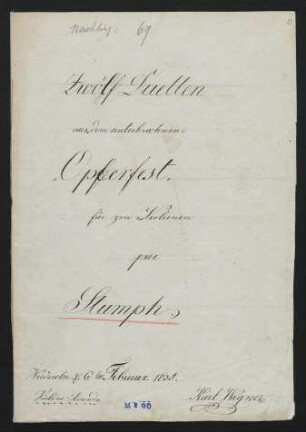 Nachtrg: 69
Zwölf Duetten
aus dem unterbrochenen
Opferfest.
für zwei Violinen
par
Stumpf
6ten Februar 1838.
Karl Wagner